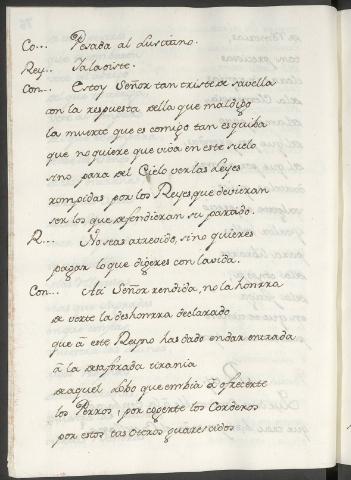 Co... Pesada al Lusitano.
Rey.. Jalaoiste.
Con... Estoy Señor tan triste de savella
con la respuesta della que maldigo
la muerte que es comigo tan esquiba
que no quiere que viva en este suelo
sino para del Cielo ver las leyes
rompidas por los Reyes, que devieran
ser los que defendieran su partido.
R... No seas atrevido, si no quieres
pagar lo que dixeres con la vida.
Con... Ai Señor rendida, no la honrra
de verte la deshonrra declarado
que â este Reyno has dado en dar entrada
â la desaforada tirania
de aquel Lobo que embia â ofrecerte
los Perros, por cogerte los Corderos
por estos tus oteros guarecidos